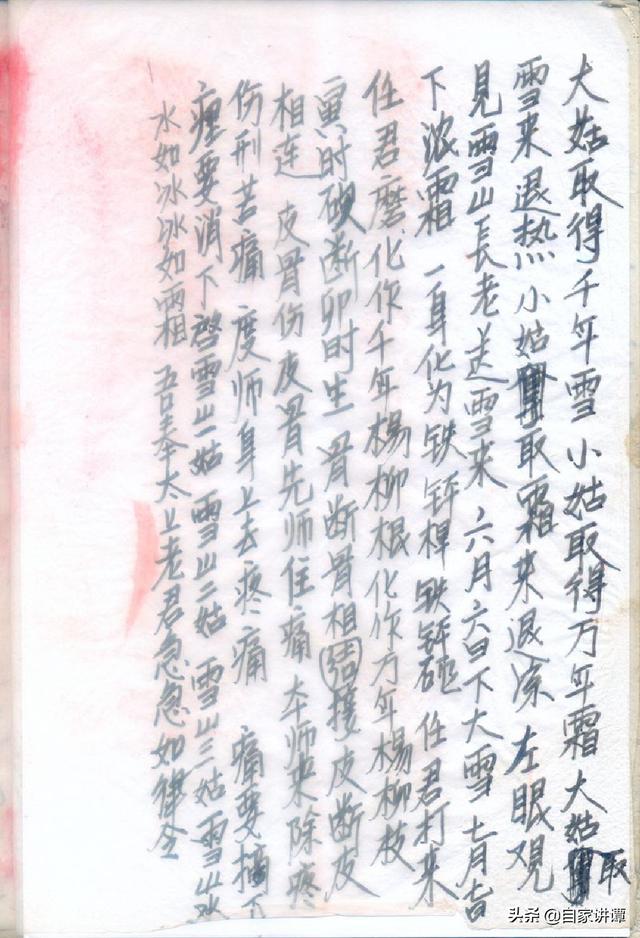 大姑取得千年雪小姑取得万年霜大姑取
雪来退热小姑取霜来退凉左眼观
見雪山長老送雪来六月六日下大雪七月吉
下浓霜一身化为铁钚桿铁钚砣任君打来
任君磨化作千年楊柳根化作万年楊柳枝
寅时砍断卯时生骨断骨相结接皮断皮
相连皮骨伤皮骨先师住痛本师来除疼
伤刑苦痛度师身上去疼痛痛要摘下
瘇要消下啓雪山一姑雪山二姑雪山三姑雪山
水如冰冰如霜吾奉太上老君急急如律令
头条@自家讲谭